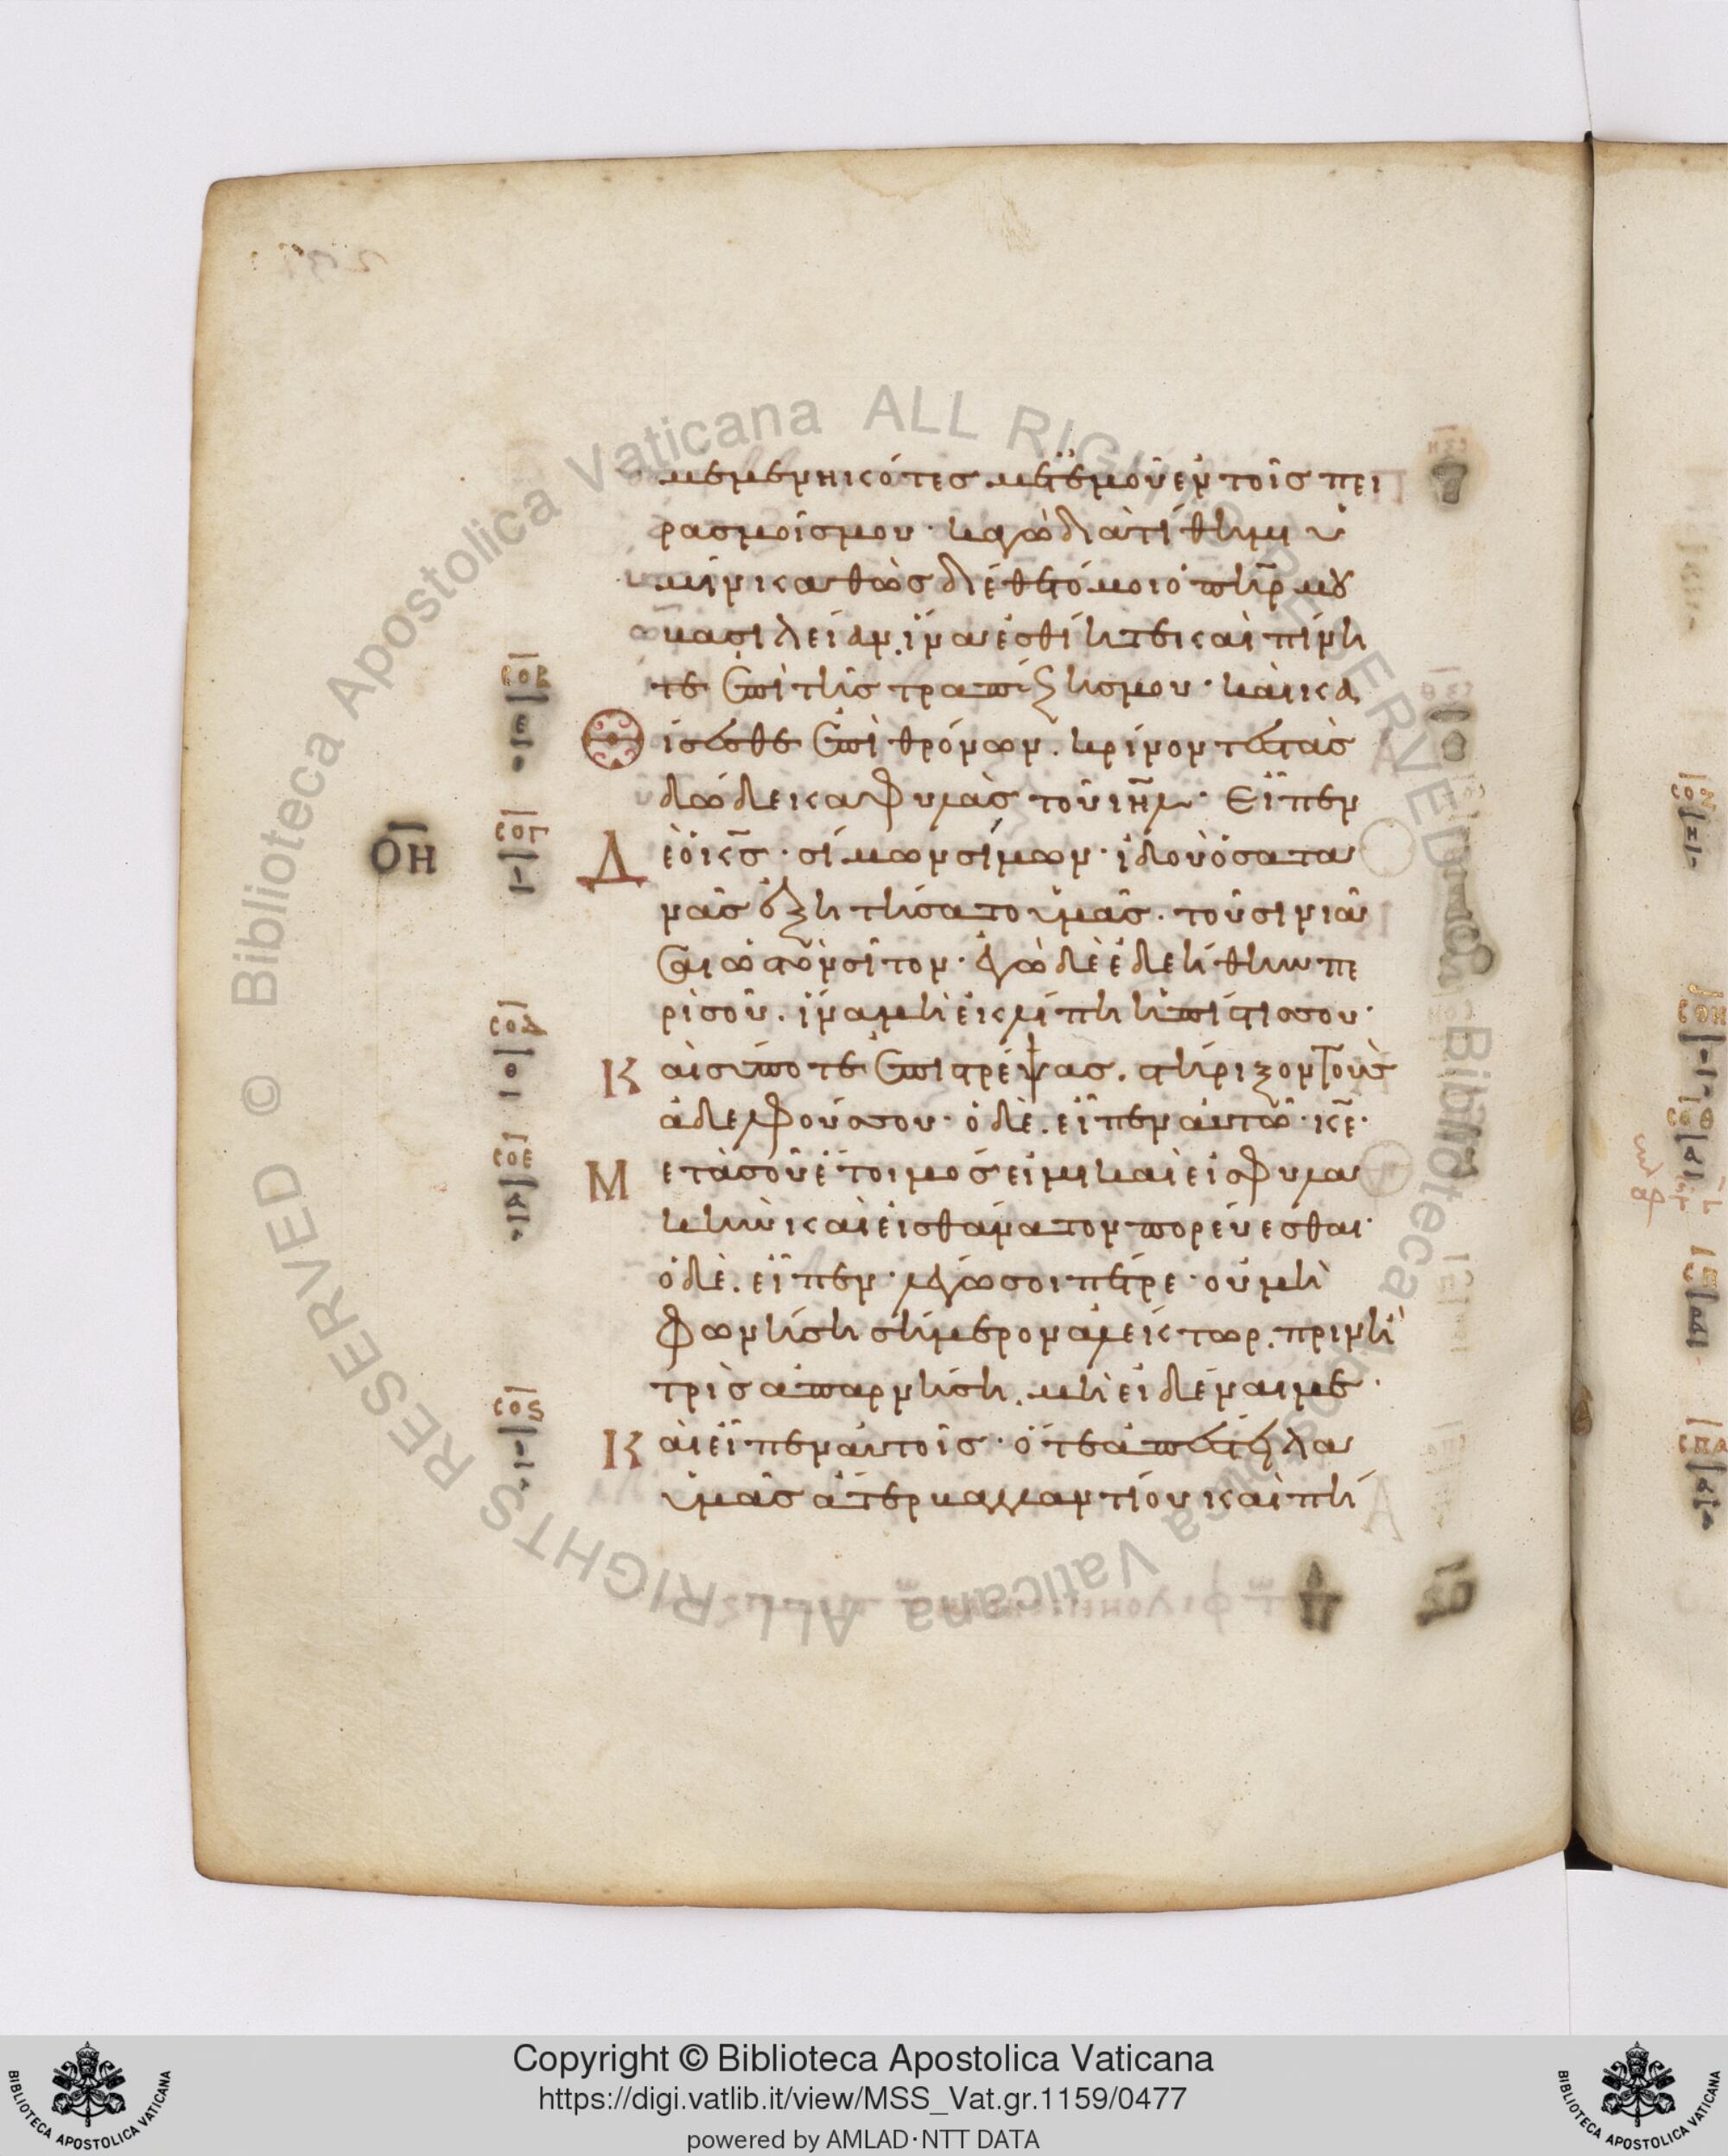 μεμενηκότες μετ' ἐμοῦ ἐν τοῖς πει
ρασμοίς μου· κἀγὼ διατίθημι ὑ
μίν καθὼς διέθετό μοι ὁ πη̅ρ μου
βασιλείαν. ἵνα ἐσθίητε καὶ πίνη
τε ἐπὶ τῆς τραπέζης μου· καὶ κα
θίσεσθε ἐπὶ θρόνων. κρίνοντες τὰς
δώδεκα φυλὰς τοῦ ιη̅λ· Εἶπεν
Δὲ ὁ κ̅ς· σίμων σίμων· ἰδοὺ ὁ σατα
νᾶς ἐξητήσατο ὑμᾶς. τοῦ σινιά
σαι ὡς τὸν σῖτον· ἐγὼ δὲ ἐδεήθην πε
ρὶ σοῦ. ἵνα μὴ ἐκλίπη ἡ πίστις σου·
Καὶ σύ ποτε ἐπιστρέψας. στήριξον τοὺς
ἀδελφούς σου· ὁ δὲ. εἶπεν αὐτῶ· κ̅ε·
Μετὰ σοῦ ἕτοιμός εἰμι καὶ εἰς φυλα
κὴν καὶ εἰς θάνατον πορεύεσθαι·
ὁ δὲ. εἶπεν· λέγω σοι πέτρε· οὐ μὴ
φωνήση σήμερον ἀλέκτωρ. πρὶν ἢ
τρὶς ἀπαρνήση. μὴ εἰδέναι με·
Καὶ εἶπεν αὐτοῖς· ὅτε ἀπέστειλα
ὑμᾶς ἄτερ βαλλαντίου καὶ πή
ΟΗ
ϹΟΒ
Ι
Ε
ϹΟΓ
Ι
ϹΟΔ
Ι
ϹΟΕ
ΙΑ
ϹΟϚ
Ι
Copyright © Biblioteca Apostolica Vaticana
https://digi.vatlib.it/view/MSS_Vat.gr.1159/0477
powered by AMLAD·NTT DATA
BIBLIOTECA APOSTOLICA VATICANA
BIBLIOTECA APOSTOLICA VATICANA
© Biblioteca Apostolica Vaticana ALL RIGHTS RESERVED
© Biblioteca Apostolica Vaticana ALL RIGHTS RESERVED